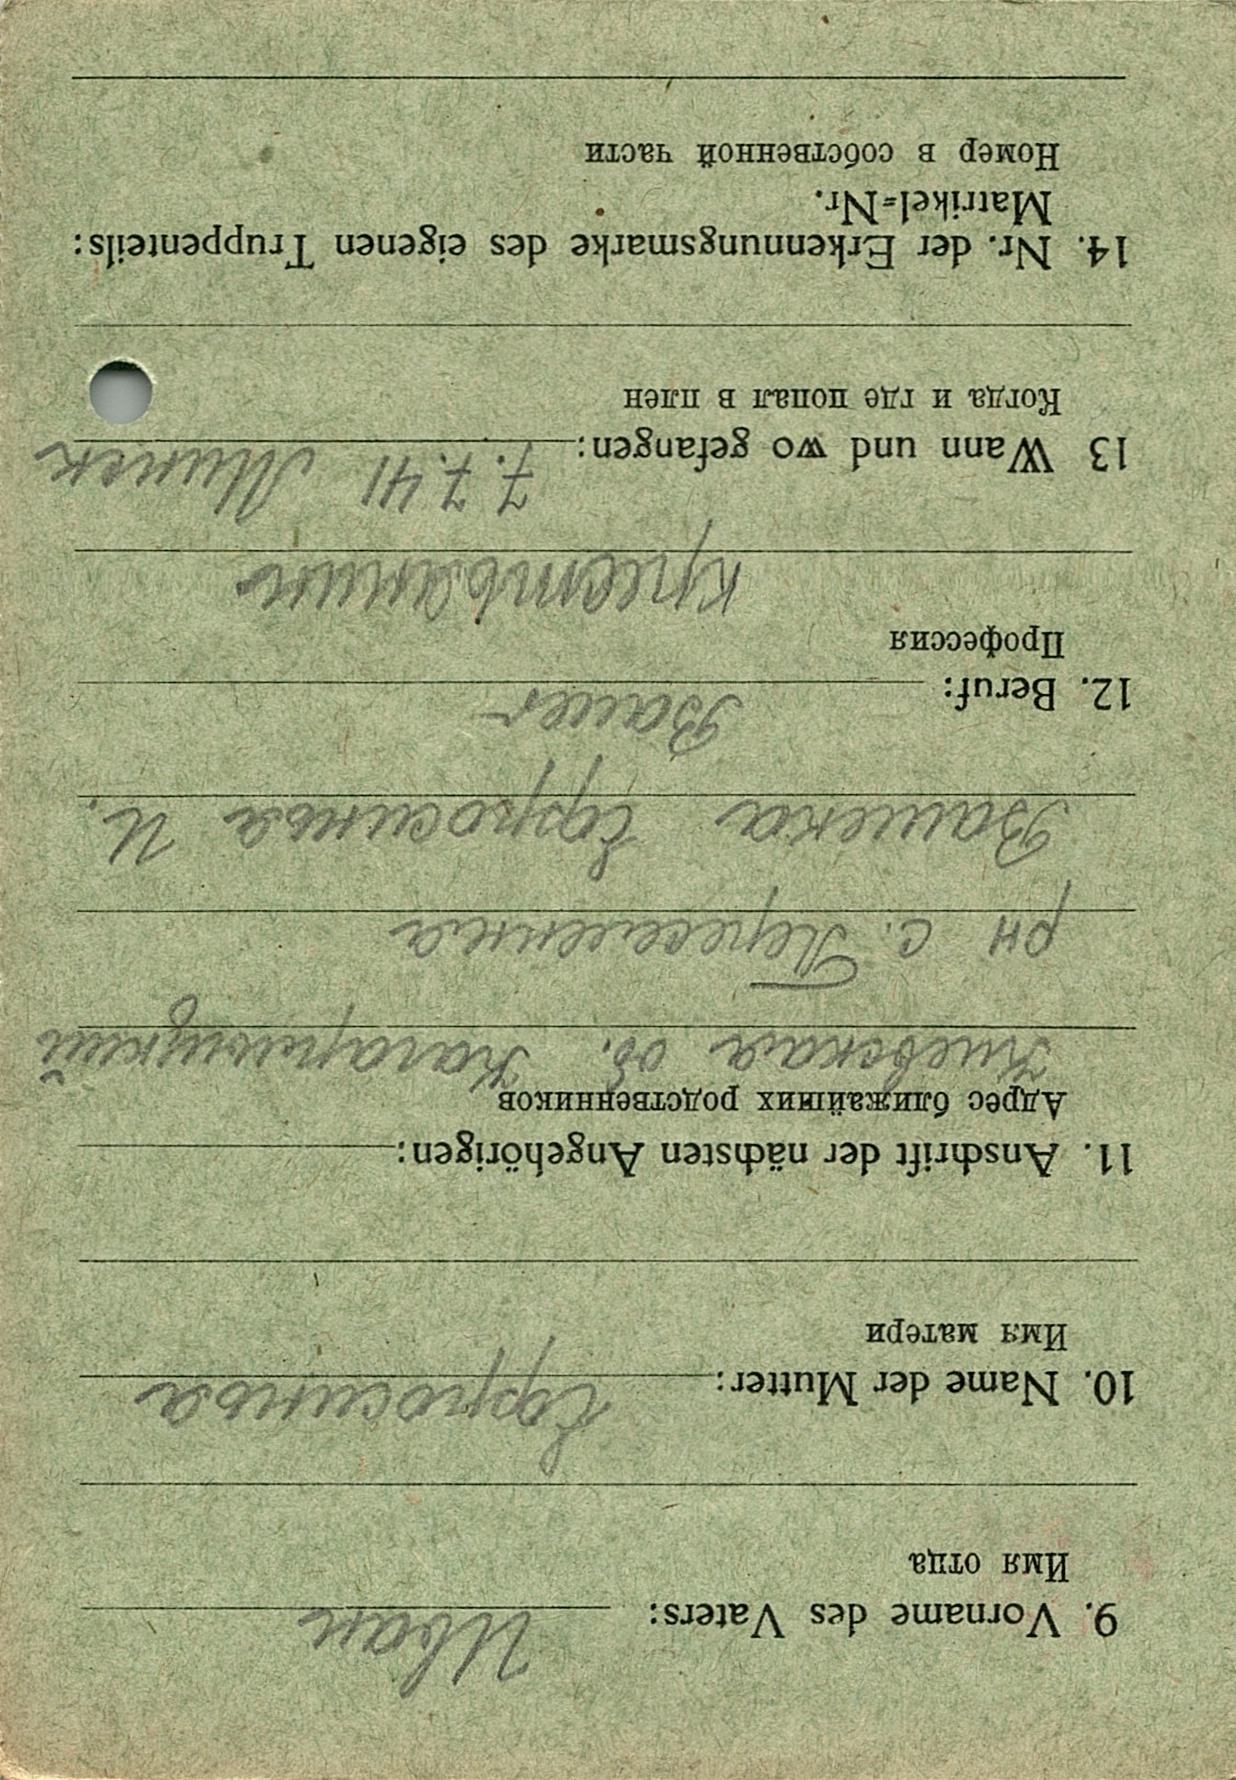 9. Vorname des Vaters: Иван
Имя отца
10. Name der Mutter: Ефросинья
Имя матери
11. Anschrift der nächsten Angehörigen:
Адрес ближайших родственников
Киевская об. Кагарлыцкий
рн с.
Ефросинья И.
12. Beruf: Bauer
Профессия
крестьянин
13 Wann und wo gefangen: 7.7.41 Минск
Когда и где попал в плен
14. Nr. der Erkennungsmarke des eigenen Truppenteils:
Matrikel=Nr.
Номер в собственной части